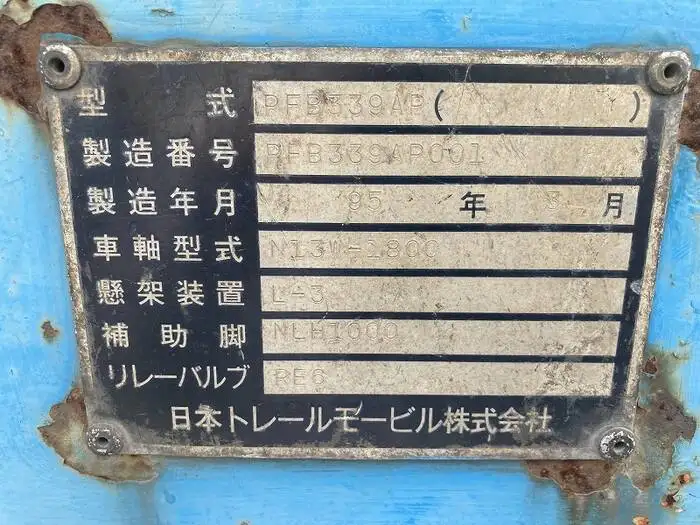 型式 PFB339AP( )
製造番号 PFB339AP001
製造年月 95年 3月
車軸型式 N13W-1800
懸架装置 L-3
補助脚 NLH1000
リレーバルブ RE6
日本トレールモービル株式会社